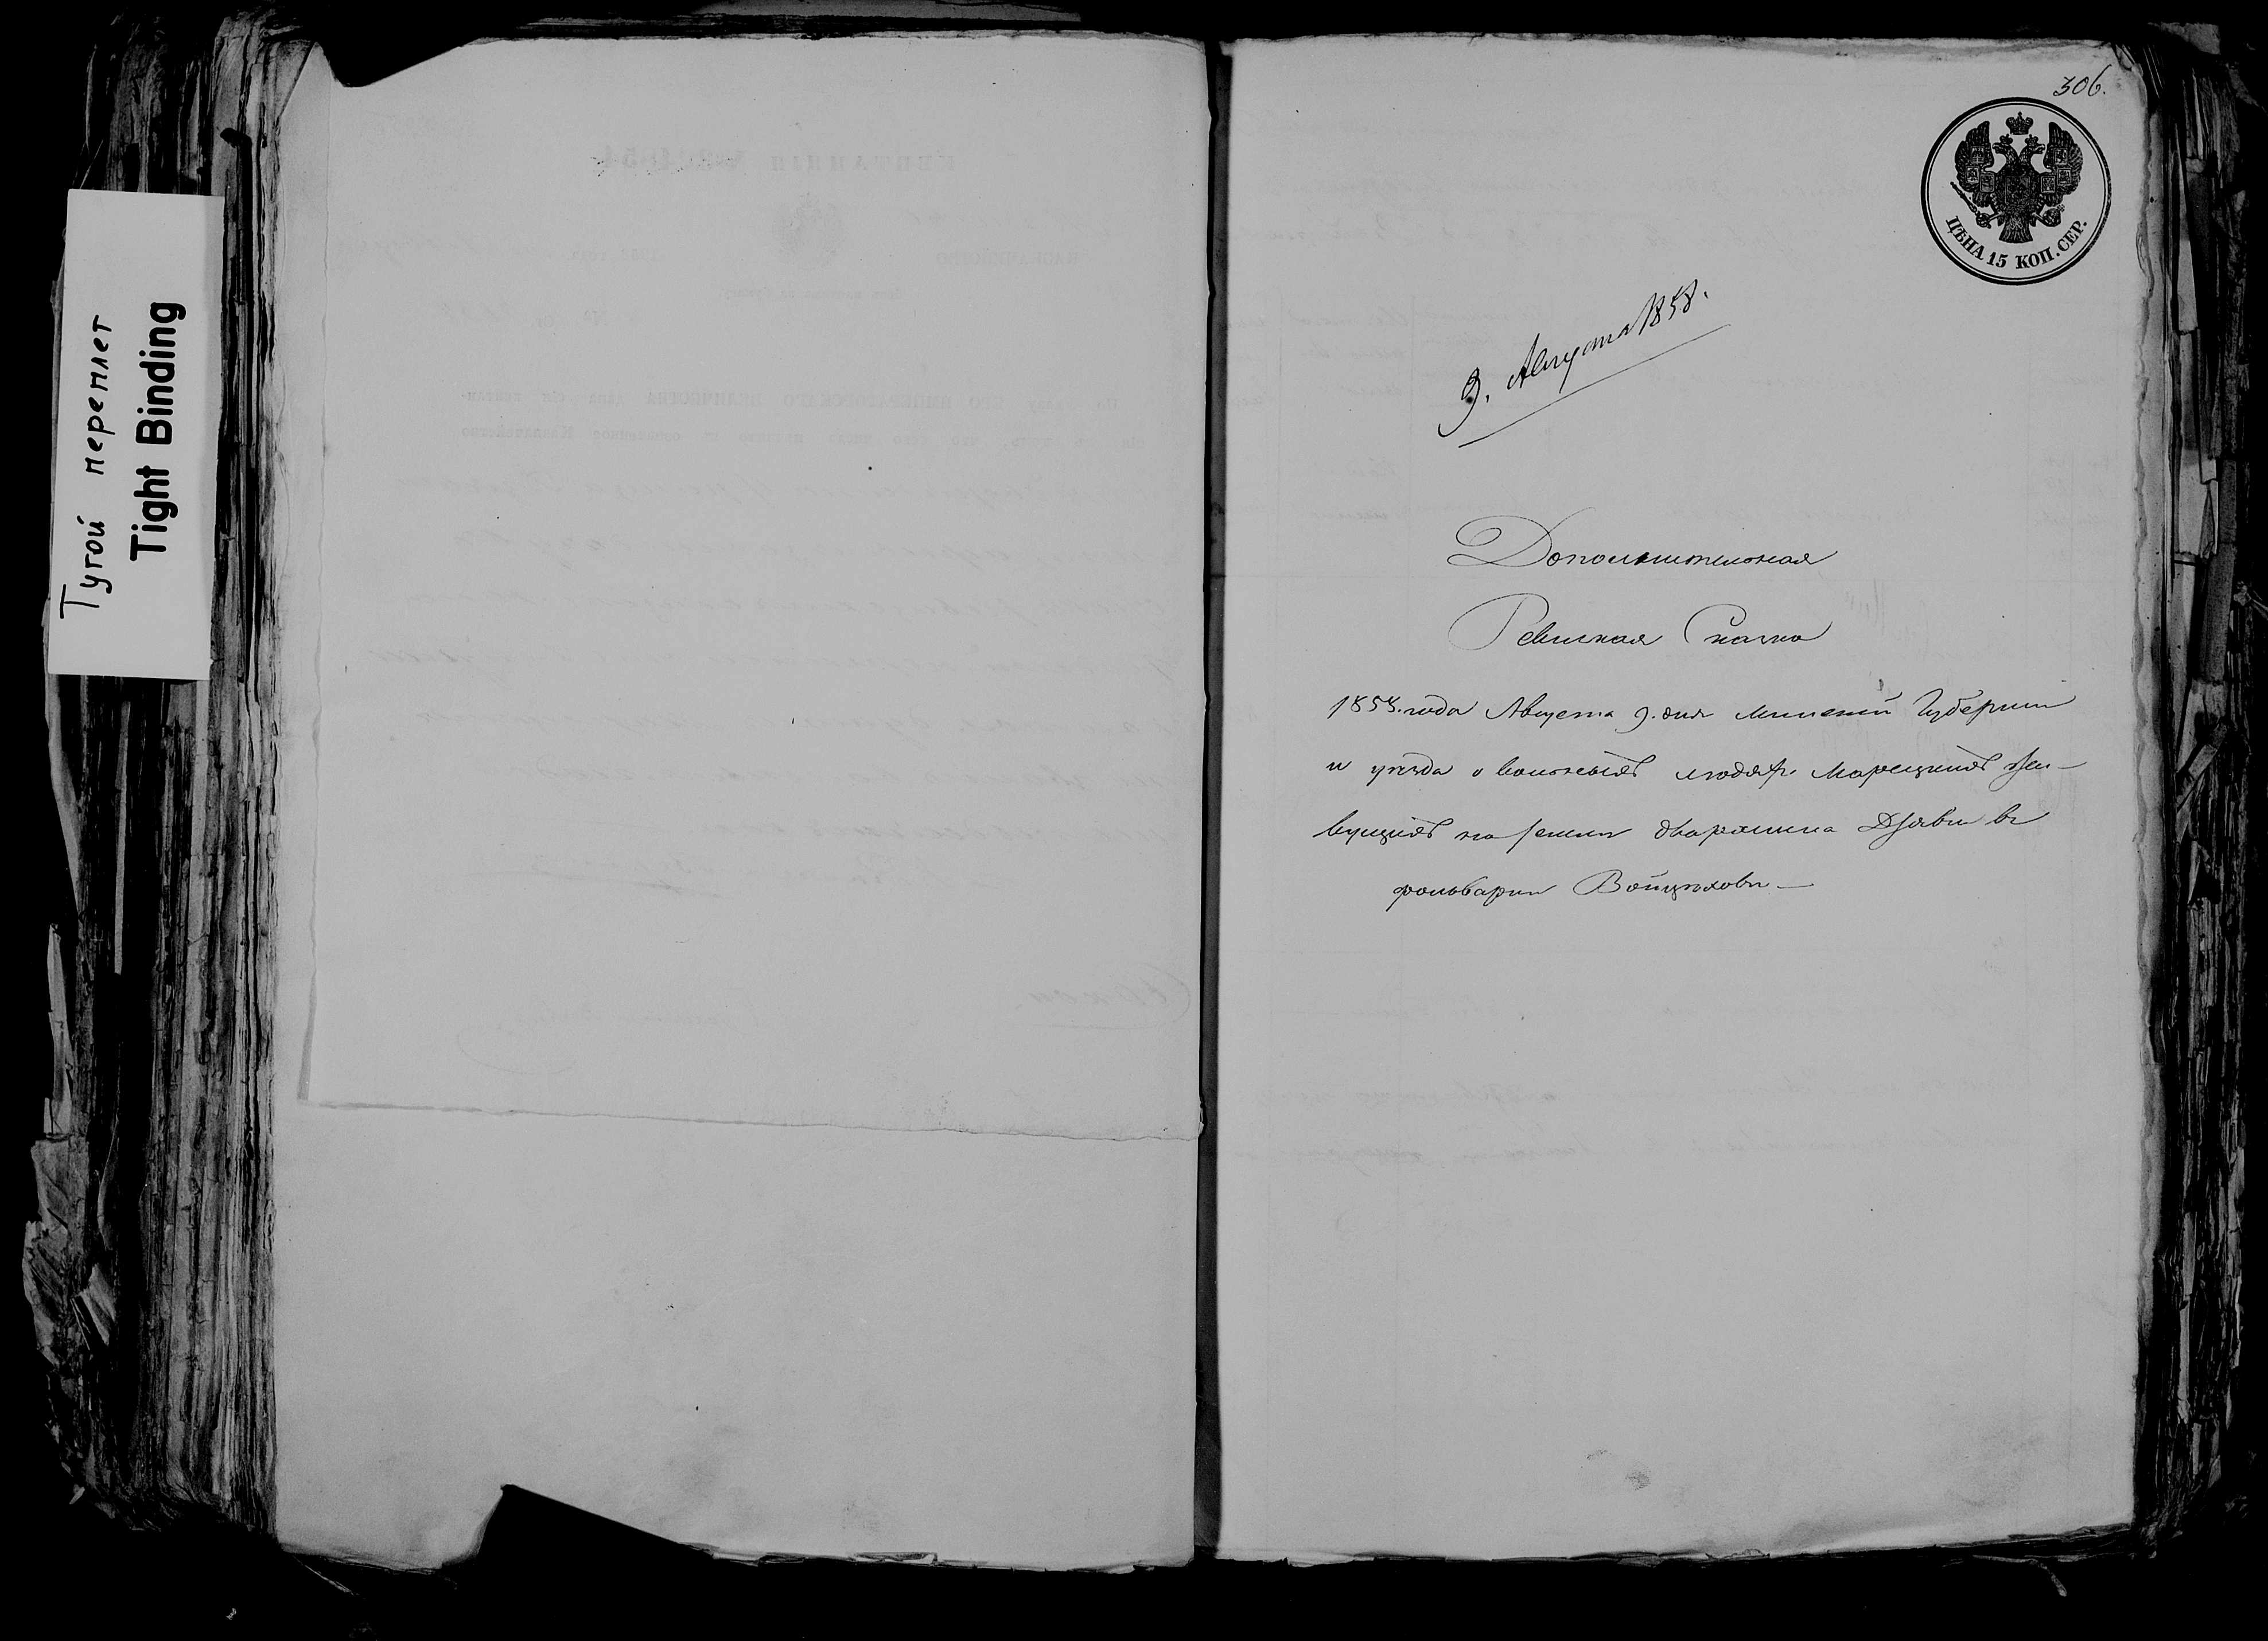 Тугой переплет
Tight Binding
306.
ЦѢНА 15 КОП. СЕР.
9. Августа 1858.
Дополнительная
Ревизская Сказка
1858. года Августа 9. дня Минской Губерніи
и уѣзда о вольныхъ людяхъ Марецкихъ жи–
вущихъ на земли дворянина въ
фольварки Войцѣхови —